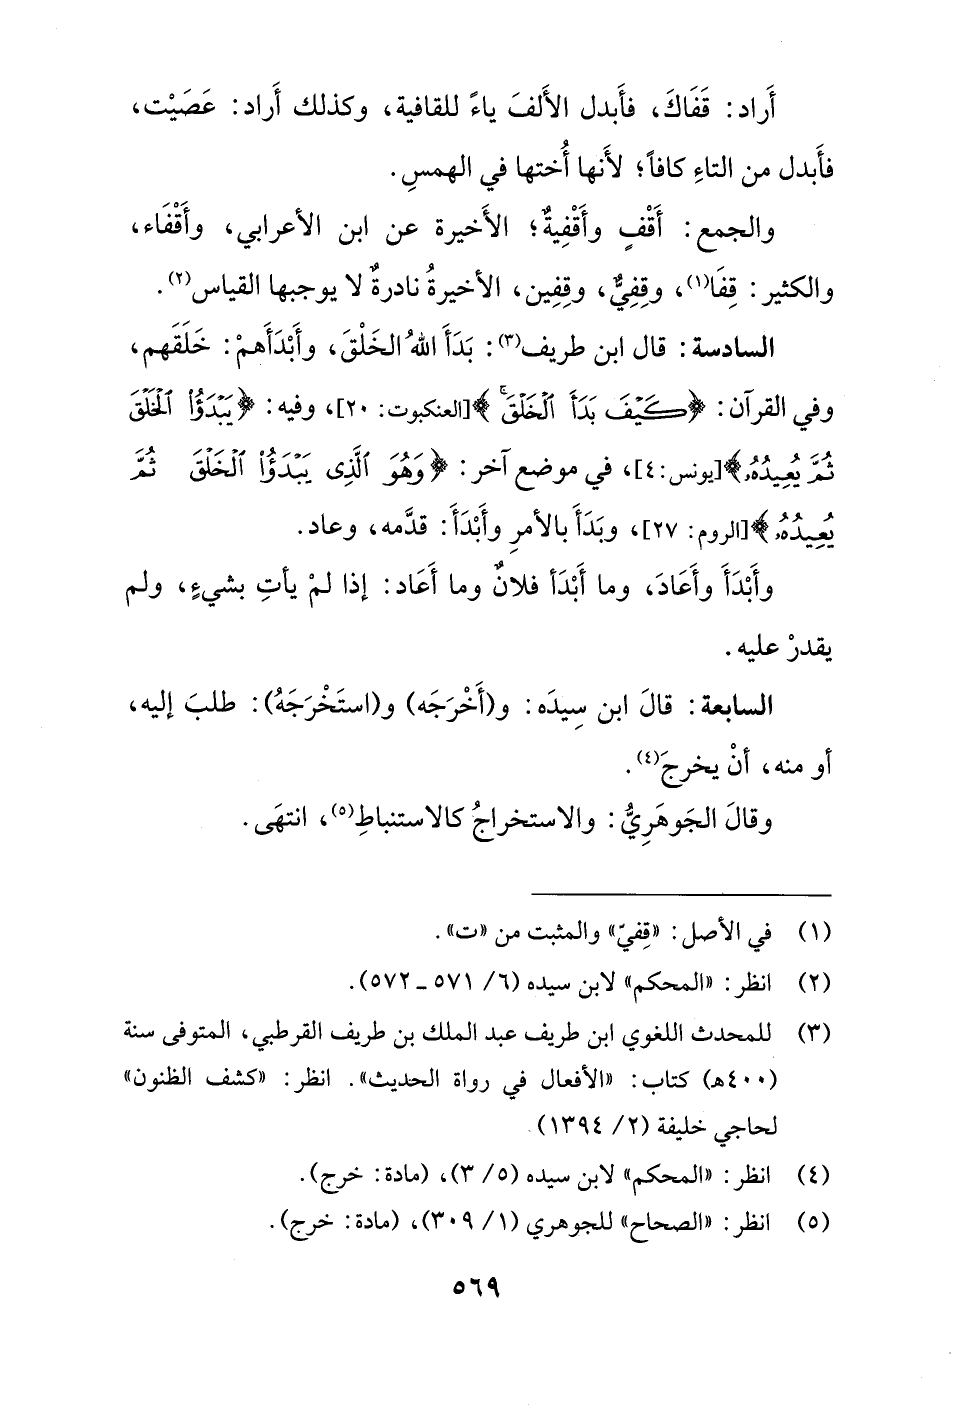 أَراد: قَفَاكَ، فأَبدل الأَلفَ ياءً للقافية، وكذلك أَراد: عَصَيْت،
فأَبدل من التاءِ كافاً؛ لأَنها أُختها في الهمسِ.
والجمع: أَقْفٍ وأَقْفِيةٌ؛ الأَخيرة عن ابن الأعرابي، وأَقْفَاء،
والكثير: قِفَا(١)، وقِفِيٌّ، وقِفِين، الأخيرةُ نادرةٌ لا يوجبها القياس(٢).
السادسة: قال ابن طريف(٣): بَدَأَ اللهُ الخَلْقَ، وأَبْدَأَهمْ: خَلَقَهم،
وفي القرآن: ﴿كَيْفَ بَدَأَ ٱلْخَلْقَۚ﴾[العنكبوت: ٢٠]، وفيه: ﴿يَبْدَؤُا۟ ٱلْخَلْقَ
ثُمَّ يُعِيدُهُۥ﴾[يونس: ٤]، في موضع آخر: ﴿وَهُوَ ٱلَّذِى يَبْدَؤُا۟ ٱلْخَلْقَ ثُمَّ
يُعِيدُهُۥ﴾[الروم: ٢٧]، وبَدَأَ بالأمرِ وأَبْدَأَ: قدَّمه، وعاد.
وأَبْدَأَ وأَعَادَ، وما أَبْدَأ فلانٌ وما أَعَاد: إذا لمْ يأتِ بشيءٍ، ولم
يقدرْ عليه.
السابعة: قالَ ابن سِيدَه: و(أَخْرَجَه) و(استَخْرَجَهُ): طلبَ إليه،
أو منه، أنْ يخرجَ(٤).
وقالَ الجَوهَرِيُّ: والاستخراجُ كالاستنباطِ(٥)، انتهَى.
(١) في الأصل: «قِفيّ» والمثبت من «ت».
(٢) انظر: «المحكم» لابن سيده (٦/ ٥٧١ ـ ٥٧٢).
(٣) للمحدث اللغوي ابن طريف عبد الملك بن طريف القرطبي، المتوفى سنة
(٤٠٠هـ) كتاب: «الأفعال في رواة الحديث». انظر: «كشف الظنون»
لحاجي خليفة (٢/ ١٣٩٤).
(٤) انظر: «المحكم» لابن سيده (٥/ ٣)، (مادة: خرج).
(٥) انظر: «الصحاح» للجوهري (١/ ٣٠٩)، (مادة: خرج).
٥٦٩